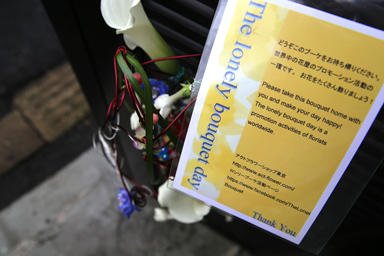 The lonely bouquet day
どうぞこのブーケをお持ち帰りください。
世界中の花屋のプロモーション活動の
一環です。 お花をたくさん飾りましょう！
Please take this bouquet home with
you and make your day happy!
The lonely bouquet day is a
promotion activities of florists
worldwide.
アクトフラワーショップ東京
http://www.act-flower.com/
ロンリーブーケ活動ページ
https://www.facebook.com/TheLonely
Bouquet
Thank You